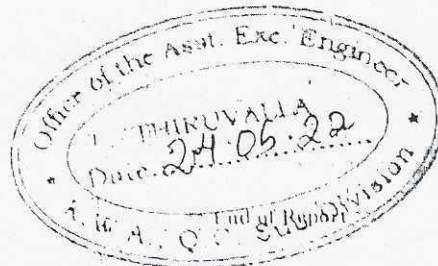 Office of the Asst. Exe. Engineer
THIRUVALLA
Date: 24.05.22
End of Report
Division